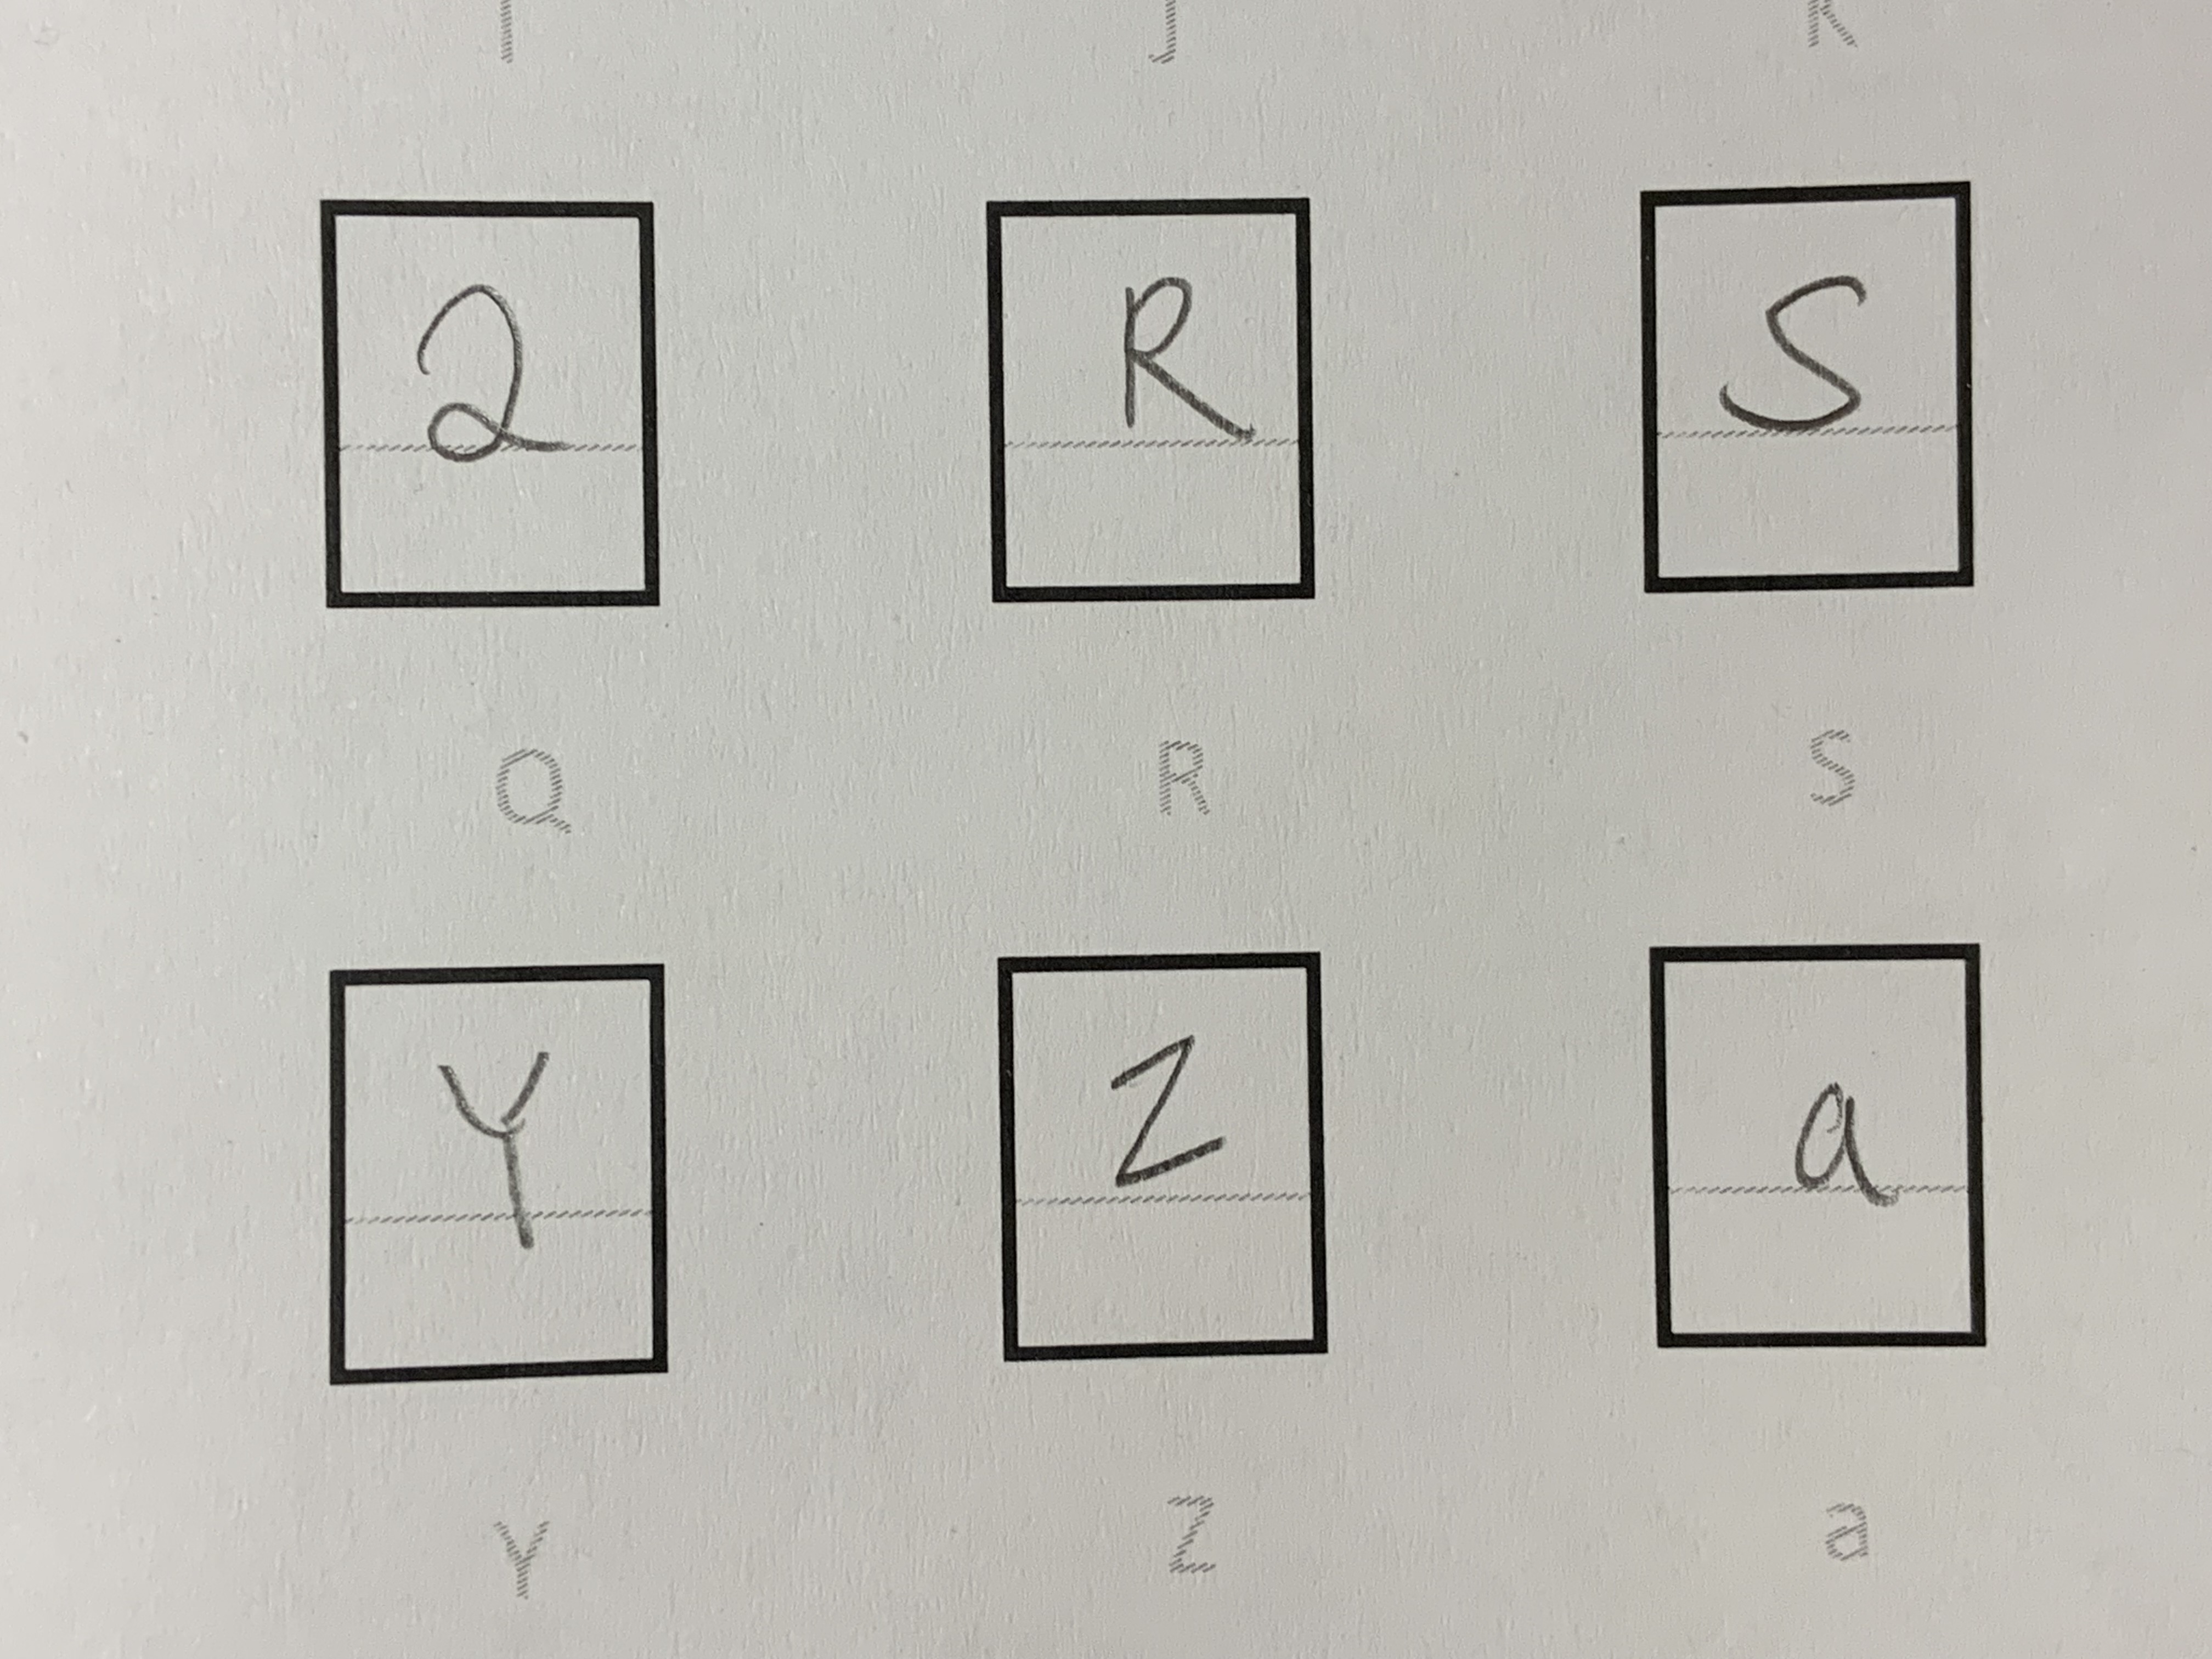 I J K
Q R S
Q R S
Y Z a
Y Z a